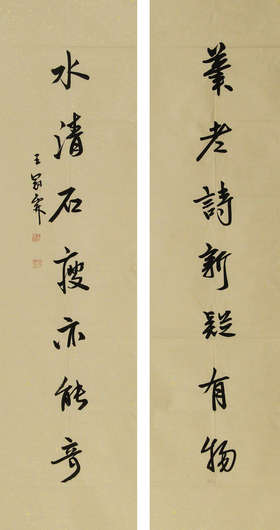 筆老詩新疑有物
水清石瘦亦能奇
王